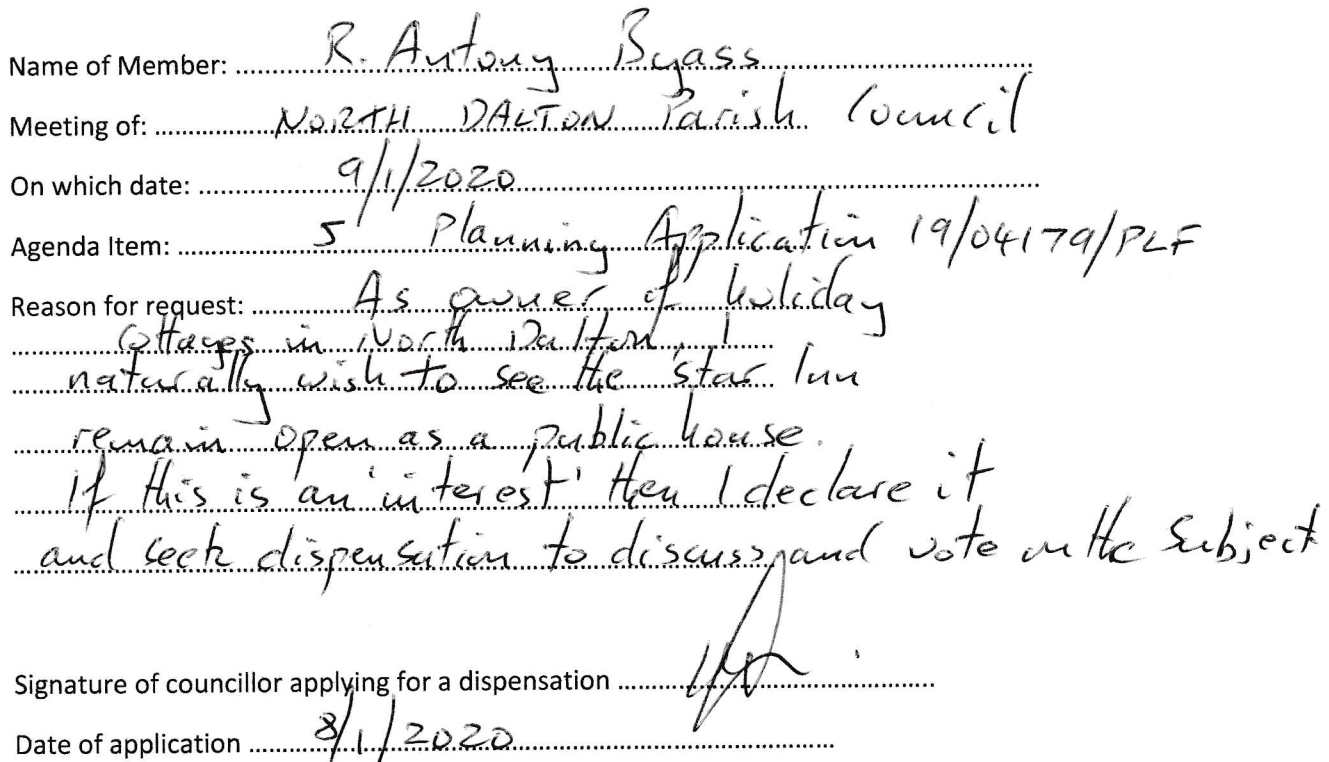 Name of Member: R. Antony Byass
Meeting of: NORTH DALTON Parish Council
On which date: 9/1/2020
Agenda Item: 5 Planning Application 19/04179/PLF
Reason for request: As owner of holiday
Cottages in North Dalton, I
naturally wish to see the Star Inn
remain open as a public house.
If this is an 'interest' then I declare it
and seek dispensation to discuss and vote on the Subject
Signature of councillor applying for a dispensation
Date of application 8/1/2020